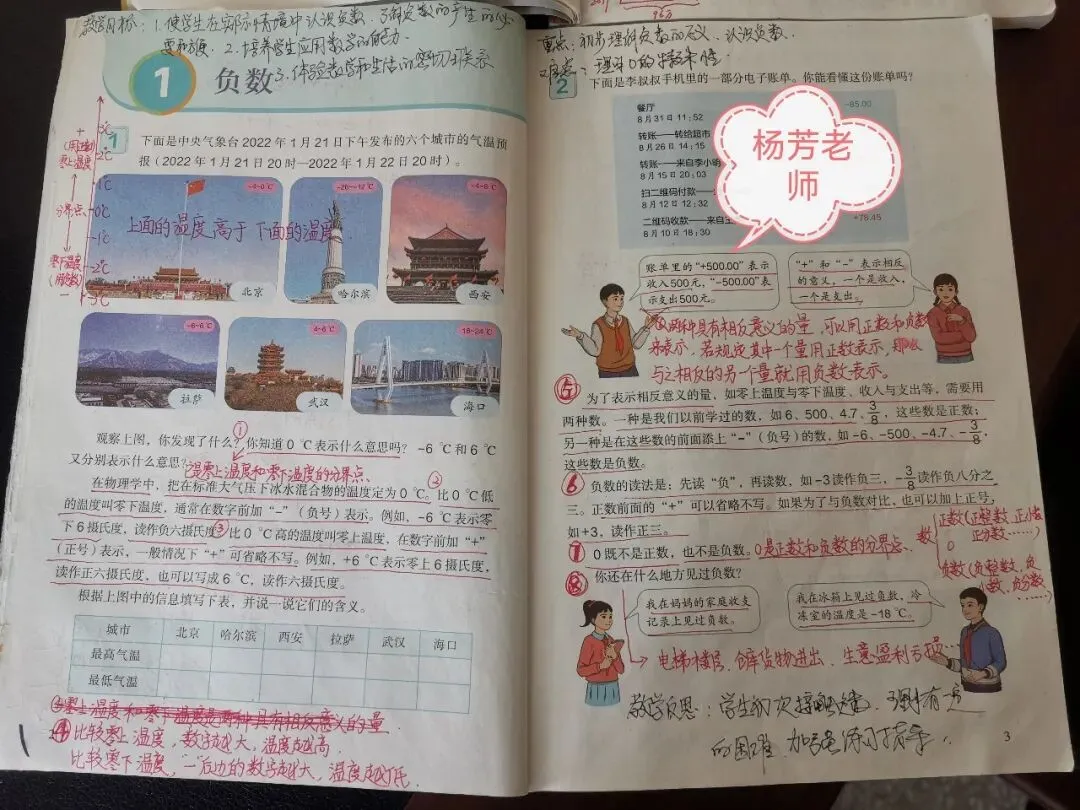 教学目标：1.使学生在实际情境中认识负数，了解负数的产生的必
要和方便。2.培养学生应用数学的能力。
3.体验数学和生活的密切联系
1 负数
1
下面是中央气象台 2022 年 1 月 21 日下午发布的六个城市的气温预
报（2022 年 1 月 21 日 20 时—2022 年 1 月 22 日 20 时）。
+
(用正数)
零上温度
3℃
2℃
1℃
分界点
0℃
-1℃
零下温度
-2℃
(用负数)
-3℃
-20~-12 ℃
上面的温度高于下面的温度
北京
哈尔滨
西安
-6~6 ℃
4~6 ℃
18~24 ℃
拉萨
武汉
海口
①
观察上图，你发现了什么？你知道 0 ℃表示什么意思吗？ -6 ℃和 6 ℃
又分别表示什么意思？
是零上温度和零下温度的分界点、
②
在物理学中，把在标准大气压下冰水混合物的温度定为 0 ℃。比 0 ℃低
的温度叫零下温度，通常在数字前加“-”（负号）表示。例如，-6 ℃表示零
下 6 摄氏度，读作负六摄氏度。③比 0 ℃高的温度叫零上温度，在数字前加“+”
（正号）表示，一般情况下“+”可省略不写。例如，+6 ℃表示零上 6 摄氏度，
读作正六摄氏度，也可以写成 6 ℃，读作六摄氏度。
根据上图中的信息填写下表，并说一说它们的含义。
城市 北京 哈尔滨 西安 拉萨 武汉 海口
最高气温
最低气温
零上温度和零下温度是两种具有相反意义的量
④比较零上温度，数字越大，温度越高.
比较零下温度，“-”后边的数字越大，温度越低.
重点：初步理解负数的含义、认识负数.
难点：理解0的
2
下面是李叔叔手机里的一部分电子账单。你能看懂这份账单吗？
餐厅 -85.00
8 月 31 日 11 : 52
转账——转给超市
8 月 26 日 14 : 15
转账——来自李小明
8 月 15 日 20 : 03
扫二维码付款——
8 月 12 日 12 : 32
二维码收款——来自
+78.45
8 月 10 日 18 : 30
杨芳老
师
账单里的“+500.00”表示
收入500元，“-500.00”表
示支出500元。
“+”和“-”表示相反
的意义，一个是收入，
一个是支出。
两种具有相反意义的量，可以用正数和负数
来表示，若规定其中一个量用正数表示，那么
与之相反的另一个量就用负数表示。
⑤
为了表示相反意义的量，如零上温度与零下温度、收入与支出等，需要用
两种数。一种是我们以前学过的数，如 6、500、4.7、3/8，这些数是正数；
另一种是在这些数的前面添上“-”（负号）的数，如 -6、-500、-4.7、-3/8，
这些数是负数。
⑥ 负数的读法是：先读“负”，再读数，如 -3 读作负三，-3/8 读作负八分之
三。正数前面的“+”可以省略不写。如果为了与负数对比，也可以加上正号，
如 +3，读作正三。
⑦ 0 既不是正数，也不是负数。0是正数和负数的分界点、
数
正数(正整数、正小数
正分数……)
0
负数(负整数、负
小数、负分数
……)
⑧ 你还在什么地方见过负数？
我在妈妈的家庭收支
记录上见过负数。
我在冰箱上见过负数，冷
冻室的温度是 -18 ℃。
电梯楼层、仓库货物进出、生意盈利亏损……
教学反思：学生初次接触负数，理解有一定
的困难，加强练习
3